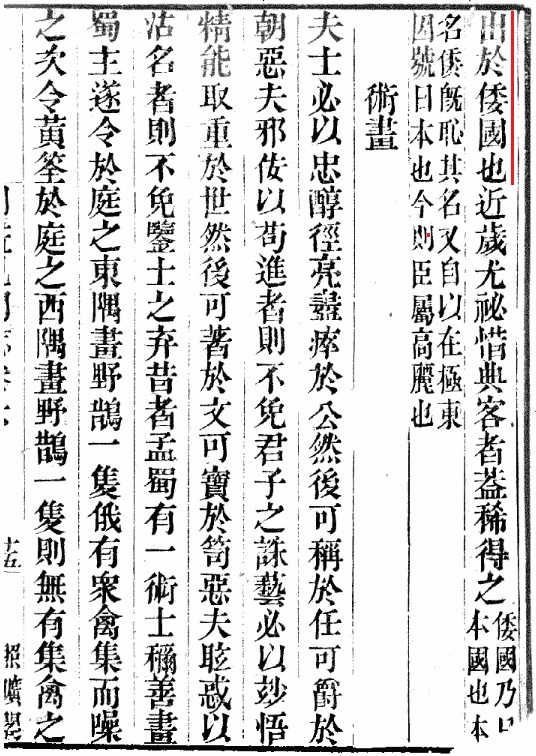 出於倭國也近歲尤祕惜典客者葢稀得之
倭國乃日
本國也本
名倭旣恥其名又自以在極東
因號日本也今則臣屬高麗也
術畫
夫士必以忠醇徑亮盡瘁於公然後可稱於任可爵於
朝惡夫邪佞以苟進者則不免君子之誅藝必以竗悟
精能取重於世然後可著於文可寶於笥惡夫眩惑以
沽名者則不免鑒士之弃昔者孟蜀有一術士稱善畫
蜀主遂令於庭之東隅畫野鵲一隻俄有衆禽集而噪
之次令黃筌於庭之西隅畫野鵲一隻則無有集禽之
十五
照曠閣